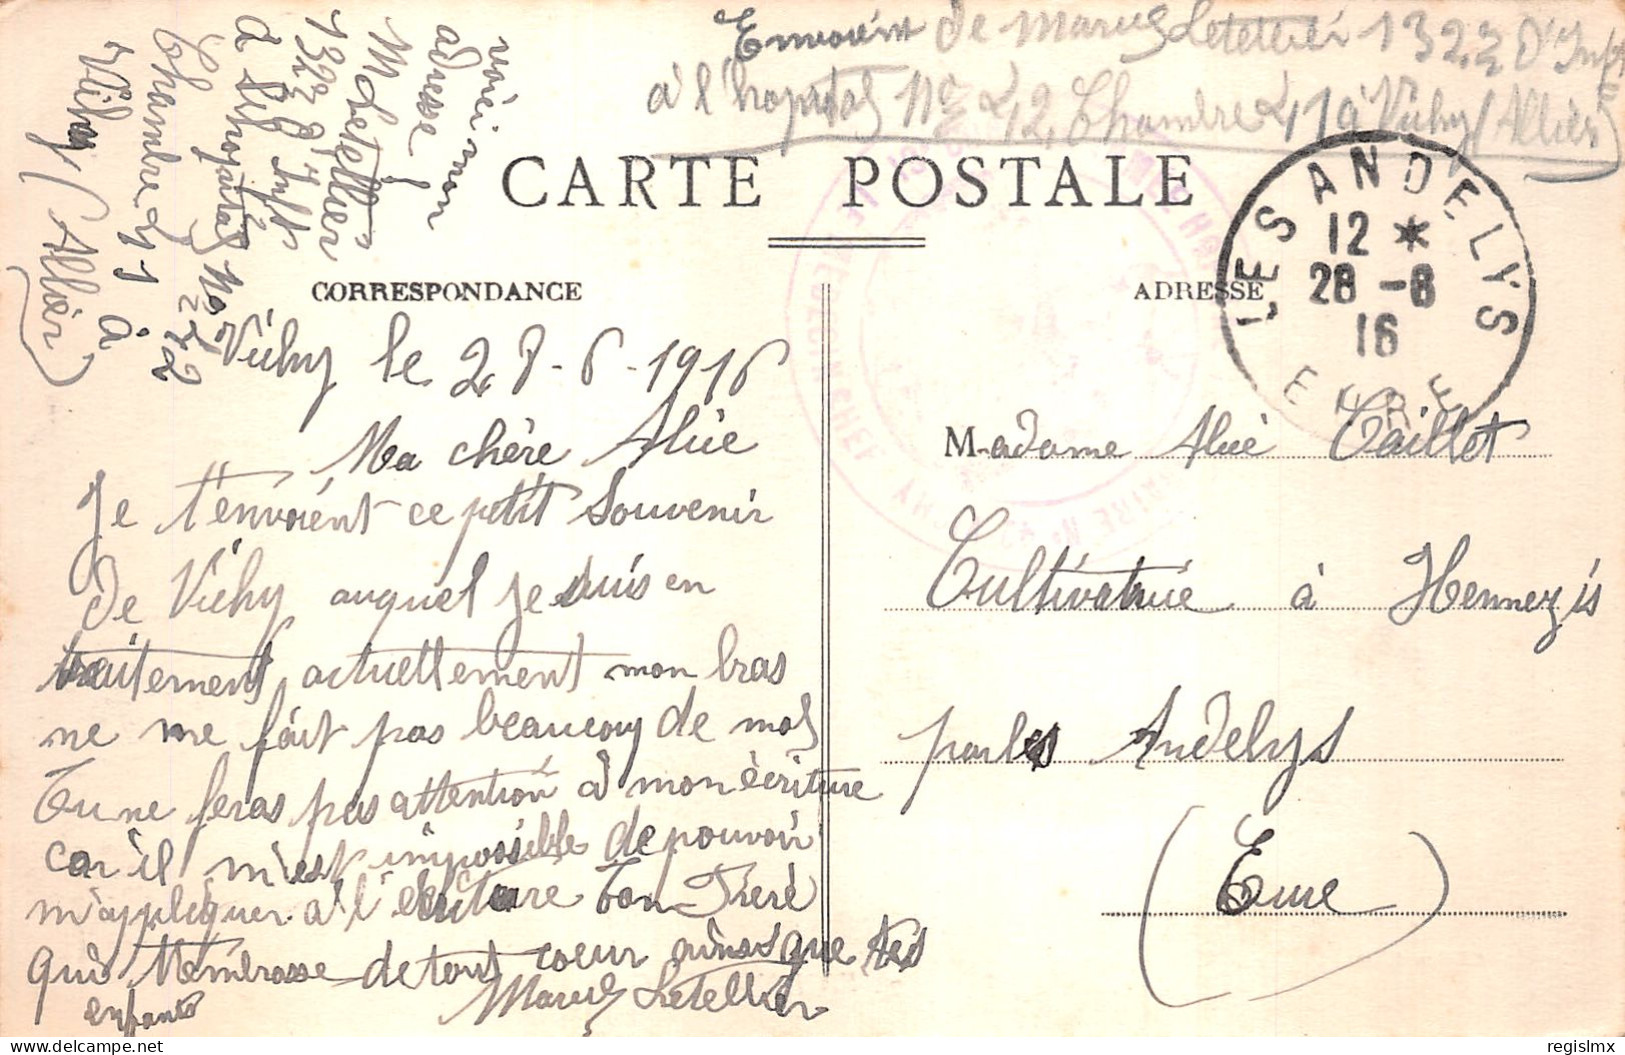 Envoient de Marius Letellier 132 2 d'Inft
à l'hopital No 42, Chambre 411 à Vichy (Allier)
voici mon
adresse
M Letellier
132 2 d'Inft
à l'hopital No 42
Chambre 411 à
Vichy (Allier)
CARTE POSTALE
CORRESPONDANCE
ADRESSE
LES ANDELYS
12 *
28 -8
16
EURE
LE MEDECIN CHEF
Vichy le 28-6-1916
Ma chère Alice
Je t'envoient ce petit Souvenir
de Vichy auquel je suis en
traitement actuellement mon bras
ne me fait pas beaucoup de mal
Tu ne feras pas attention à mon écriture
car il m'est impossible de pouvoir
m'appliquer à l'ecriture Ton Frère
qui t'embrasse de tout coeur ainsi que tes
enfants Marius Letellier
Madame Alice Caillot
Cultivatrice à Hennezis
par les Andelys
(Eure)
regislmx
delcampe.net